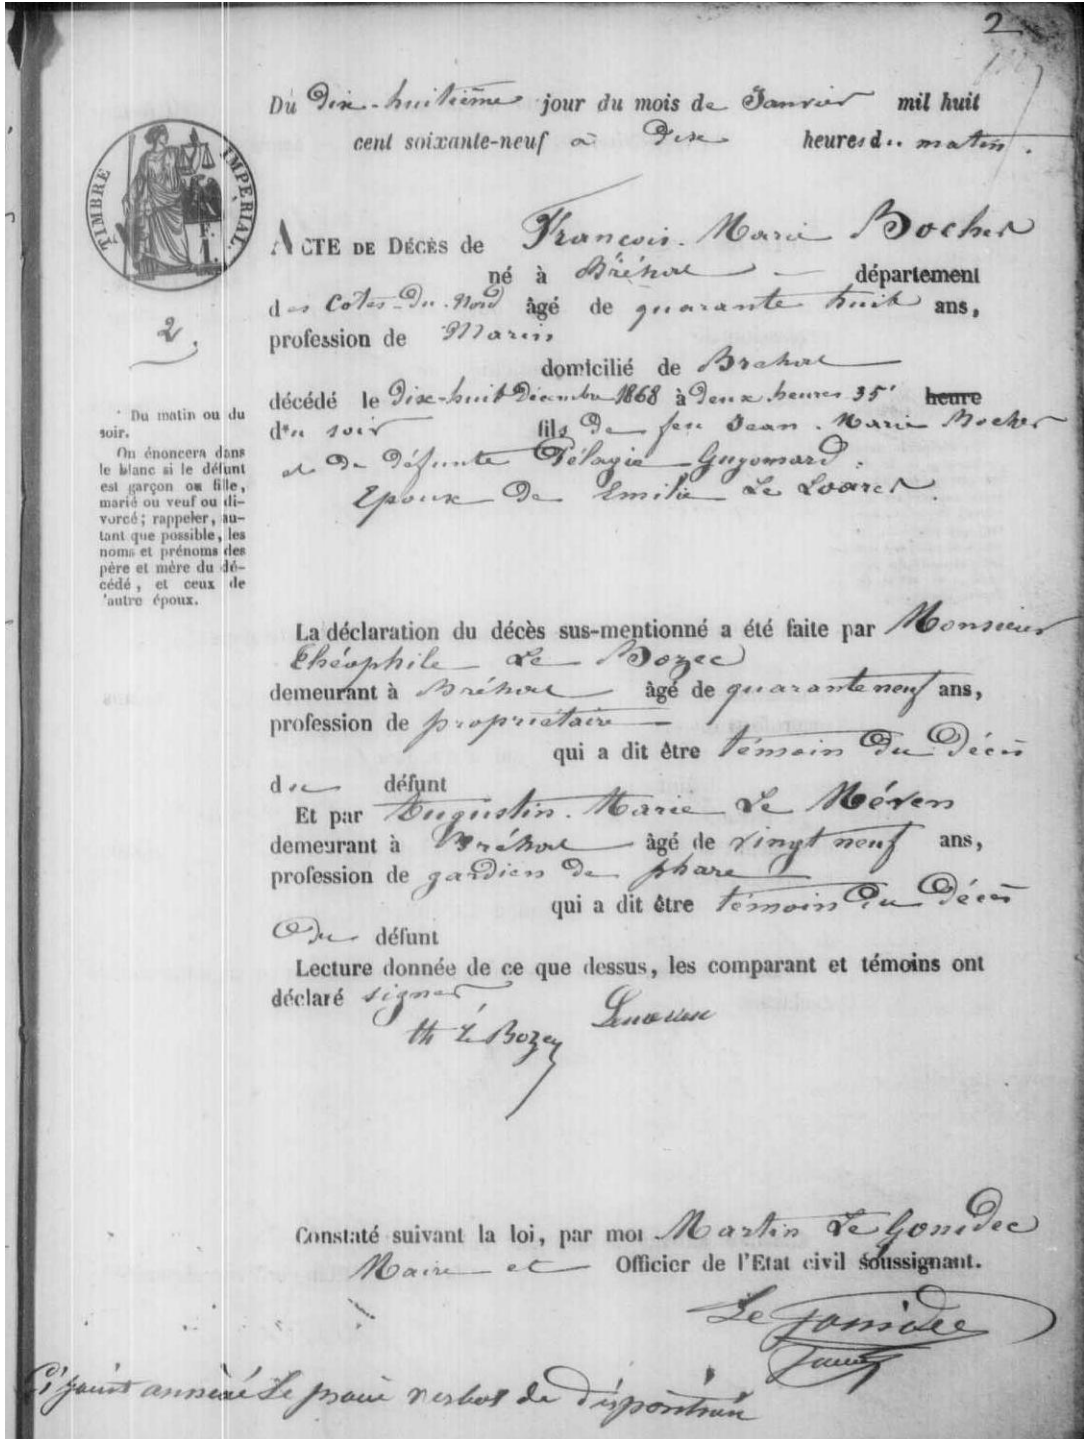 2
Du dix-huitième jour du mois de Janvier mil huit
cent soixante-neuf à dix heures du matin.
TIMBRE IMPÉRIAL
F.
1.
ACTE DE DÉCÈS de François Marie Bocher
né à Bréhat département
des Cotes-du-Nord âgé de quarante huit ans,
2.
profession de Marin
domicilié de Brehat
décédé le dix-huit Décembre 1868 à deux heures 35' heure
du soir fils de feu Jean Marie Bocher
et de défunte Pélagie Guyomard.
Epoux de Emilie Le
Du matin ou du
soir.
On énoncera dans
le blanc si le défunt
est garçon ou fille,
marié ou veuf ou di-
vorcé; rappeler, au-
tant que possible, les
noms et prénoms des
père et mère du dé-
cédé, et ceux de
'autre époux.
La déclaration du décès sus-mentionné a été faite par Monsieur
Théophile Le Bozec
demeurant à Bréhat âgé de quarante neuf ans,
profession de propriétaire
qui a dit être témoin du décès
du défunt
Et par Augustin Marie Le
demeurant à Bréhat âgé de vingt neuf ans,
profession de gardien de phare
qui a dit être témoin du décès
du défunt
Lecture donnée de ce que dessus, les comparant et témoins ont
déclaré signer
th Le Bozec
Constaté suivant la loi, par moi Martin Le Gonidec
Maire et Officier de l'Etat civil soussignant.
Le Gonidec
Ci joint annexé Le procès verbal de disparition